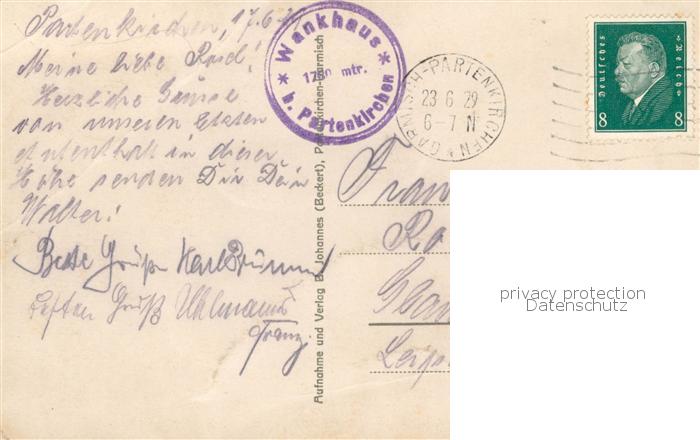 Partenkirchen, 17.6.29
Meine liebe
Herzliche Grüsse
von unserem letzten
Aufenthalt in dieser
Höhe senden Dir Dein
Walter!
Beste Grüße Karl
Gruß Uhlmann
Franz
* Wankhaus *
1780 mtr.
b. Partenkirchen
GARMISCH-PARTENKIRCHEN
23 6 29
6-7 N
Deutsches Reich
8 8
Aufnahme und Verlag B. Johannes (Beckert), Partenkirchen-Garmisch
Frau
Ro
Leip
privacy protection
Datenschutz